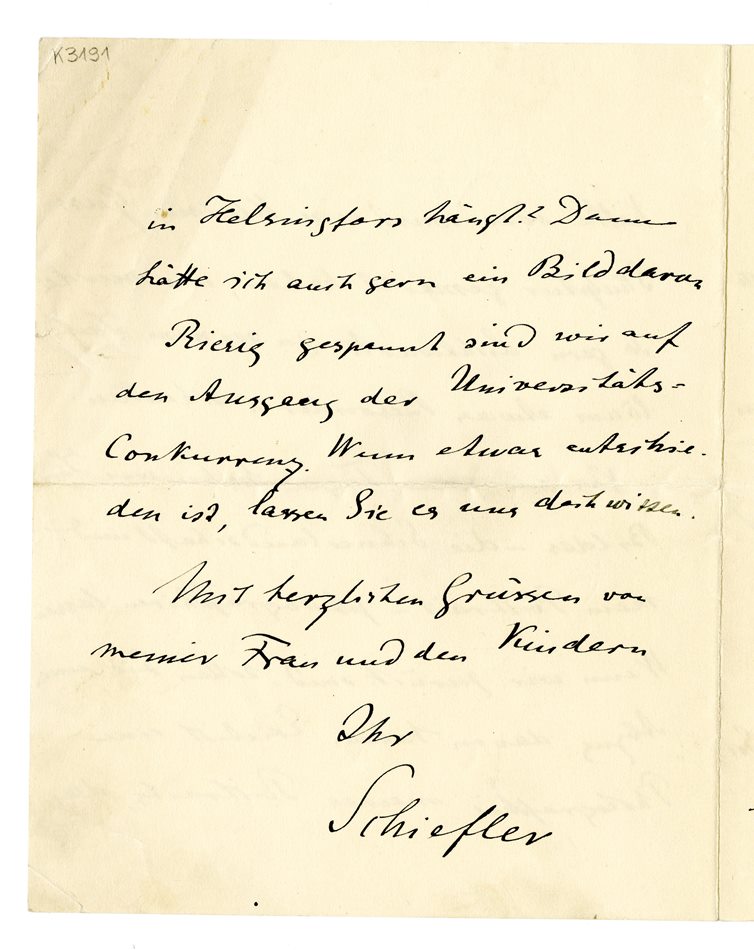 K3191
in Helsingfors hängt? Dann
hätte ich auch gern ein Bild davon
Riesig gespannt sind wir auf
den Ausgang der Universitäts-
Conkurrenz. Wenn etwas entschie-
den ist, lassen Sie es uns doch wissen.
Mit herzlichen Grüssen von
meiner Frau und den Kindern
Ihr
Schiefler